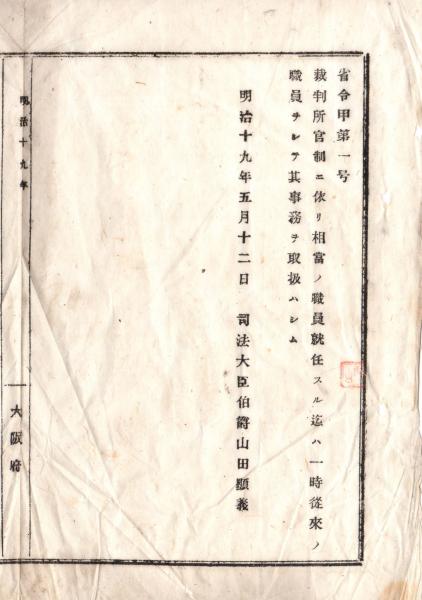 省令甲第一号
裁判所官制ニ依リ相當ノ職員就任スル迄ハ一時從來ノ
職員ヲシテ其事務ヲ取扱ハシム
明治十九年五月十二日 司法大臣伯爵山田顯義
明治十九年
大阪府